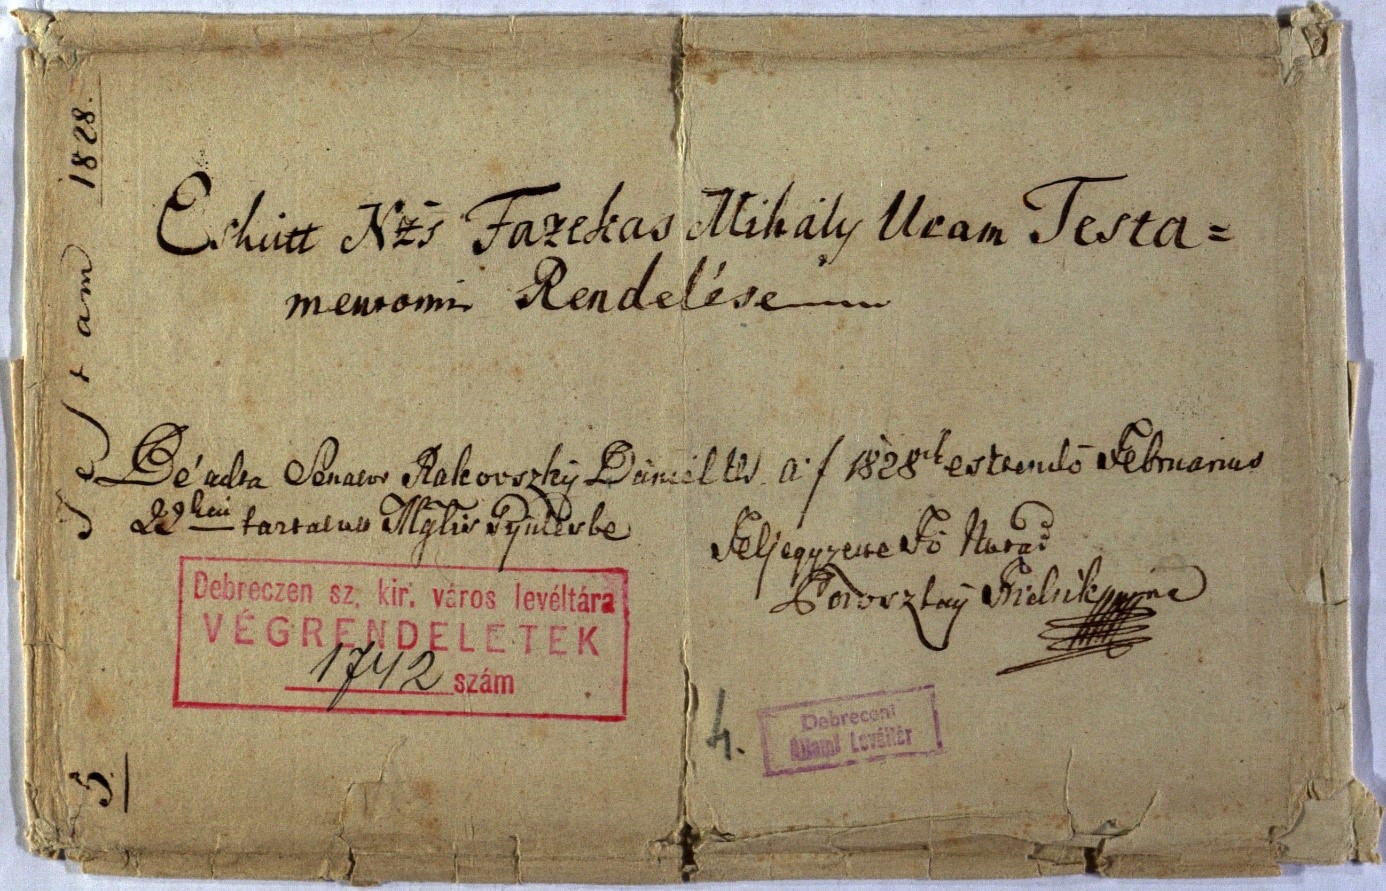 Testam 1828.
Eskütt Nzs Fazekas Mihály Uram Testa=
mentomi Rendelése
Bé adta Senator Rakovszky Dániel Ur a' f 1828ik esztendő Februarius
22kén tartatott Mglis
Feljegyzette Fő Notar
Debreczen sz. kir. város levéltára
VÉGRENDELETEK
1742 szám
4.
Debreceni
Állami Levéltár
5.